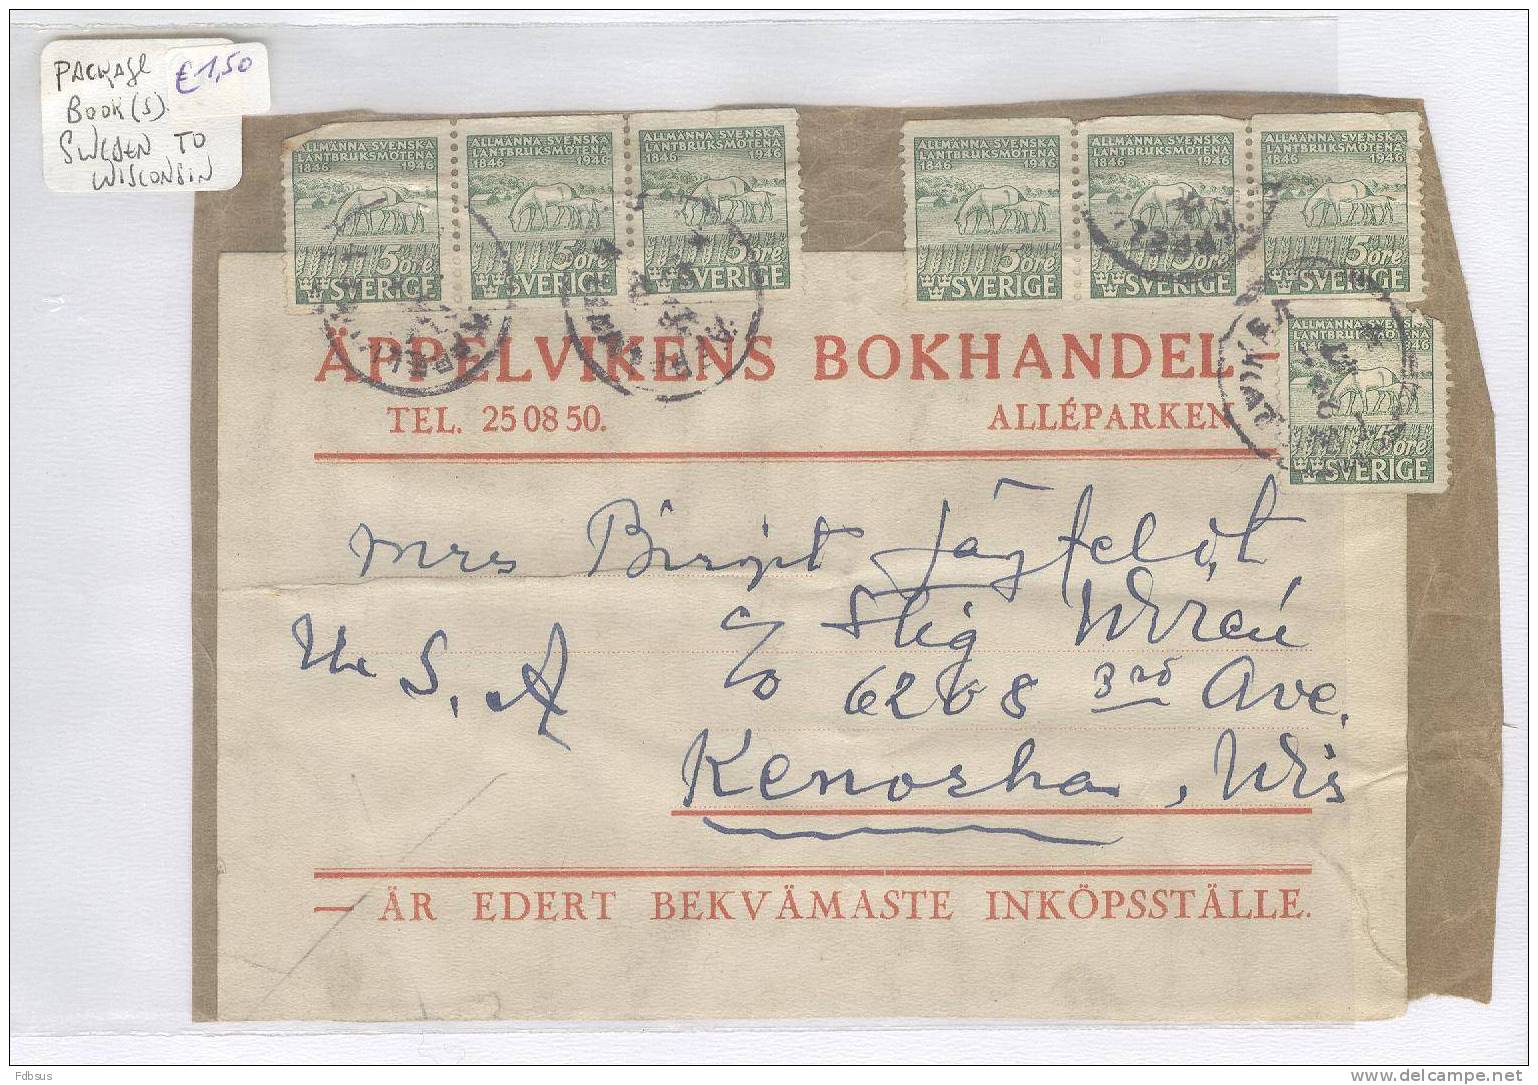 PACKAGE
€1,50
BOOK(S)
SWEDEN TO
WISCONSIN
ALLMÄNNA SVENSKA
LANTBRUKSMÖTENA
1846 1946
5 öre
SVERIGE
ALLMÄNNA SVENSKA
LANTBRUKSMÖTENA
1846 1946
5 öre
SVERIGE
ALLMÄNNA SVENSKA
LANTBRUKSMÖTENA
1846 1946
5 öre
SVERIGE
ALLMÄNNA SVENSKA
LANTBRUKSMÖTENA
1846 1946
5 öre
SVERIGE
ALLMÄNNA SVENSKA
LANTBRUKSMÖTENA
1846 1946
5 öre
SVERIGE
ALLMÄNNA SVENSKA
LANTBRUKSMÖTENA
1846 1946
5 öre
SVERIGE
ALLMÄNNA SVENSKA
LANTBRUKSMÖTENA
1846 1946
5 öre
SVERIGE
ÄPPELVIKENS BOKHANDEL –
TEL. 25 08 50. ALLÉPARKEN
Mrs Birgit Jägfeldt
c/o Stig Wirén
6208 3rd Ave.
Kenosha, Wis
U.S.A
– ÄR EDERT BEKVÄMASTE INKÖPSSTÄLLE.
Fdbsus
delcampe.net